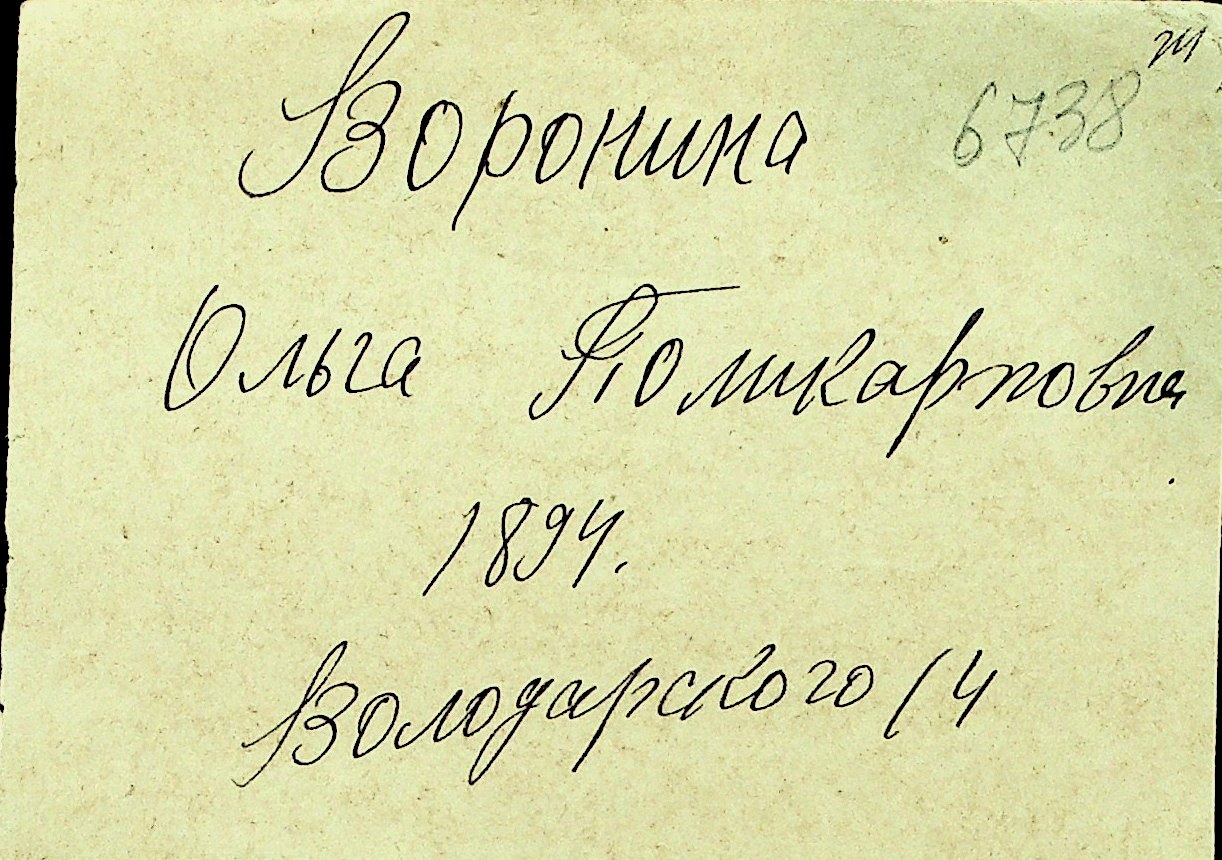 Воронина 6738
Ольга Поликарповна
1894.
Володарского 14